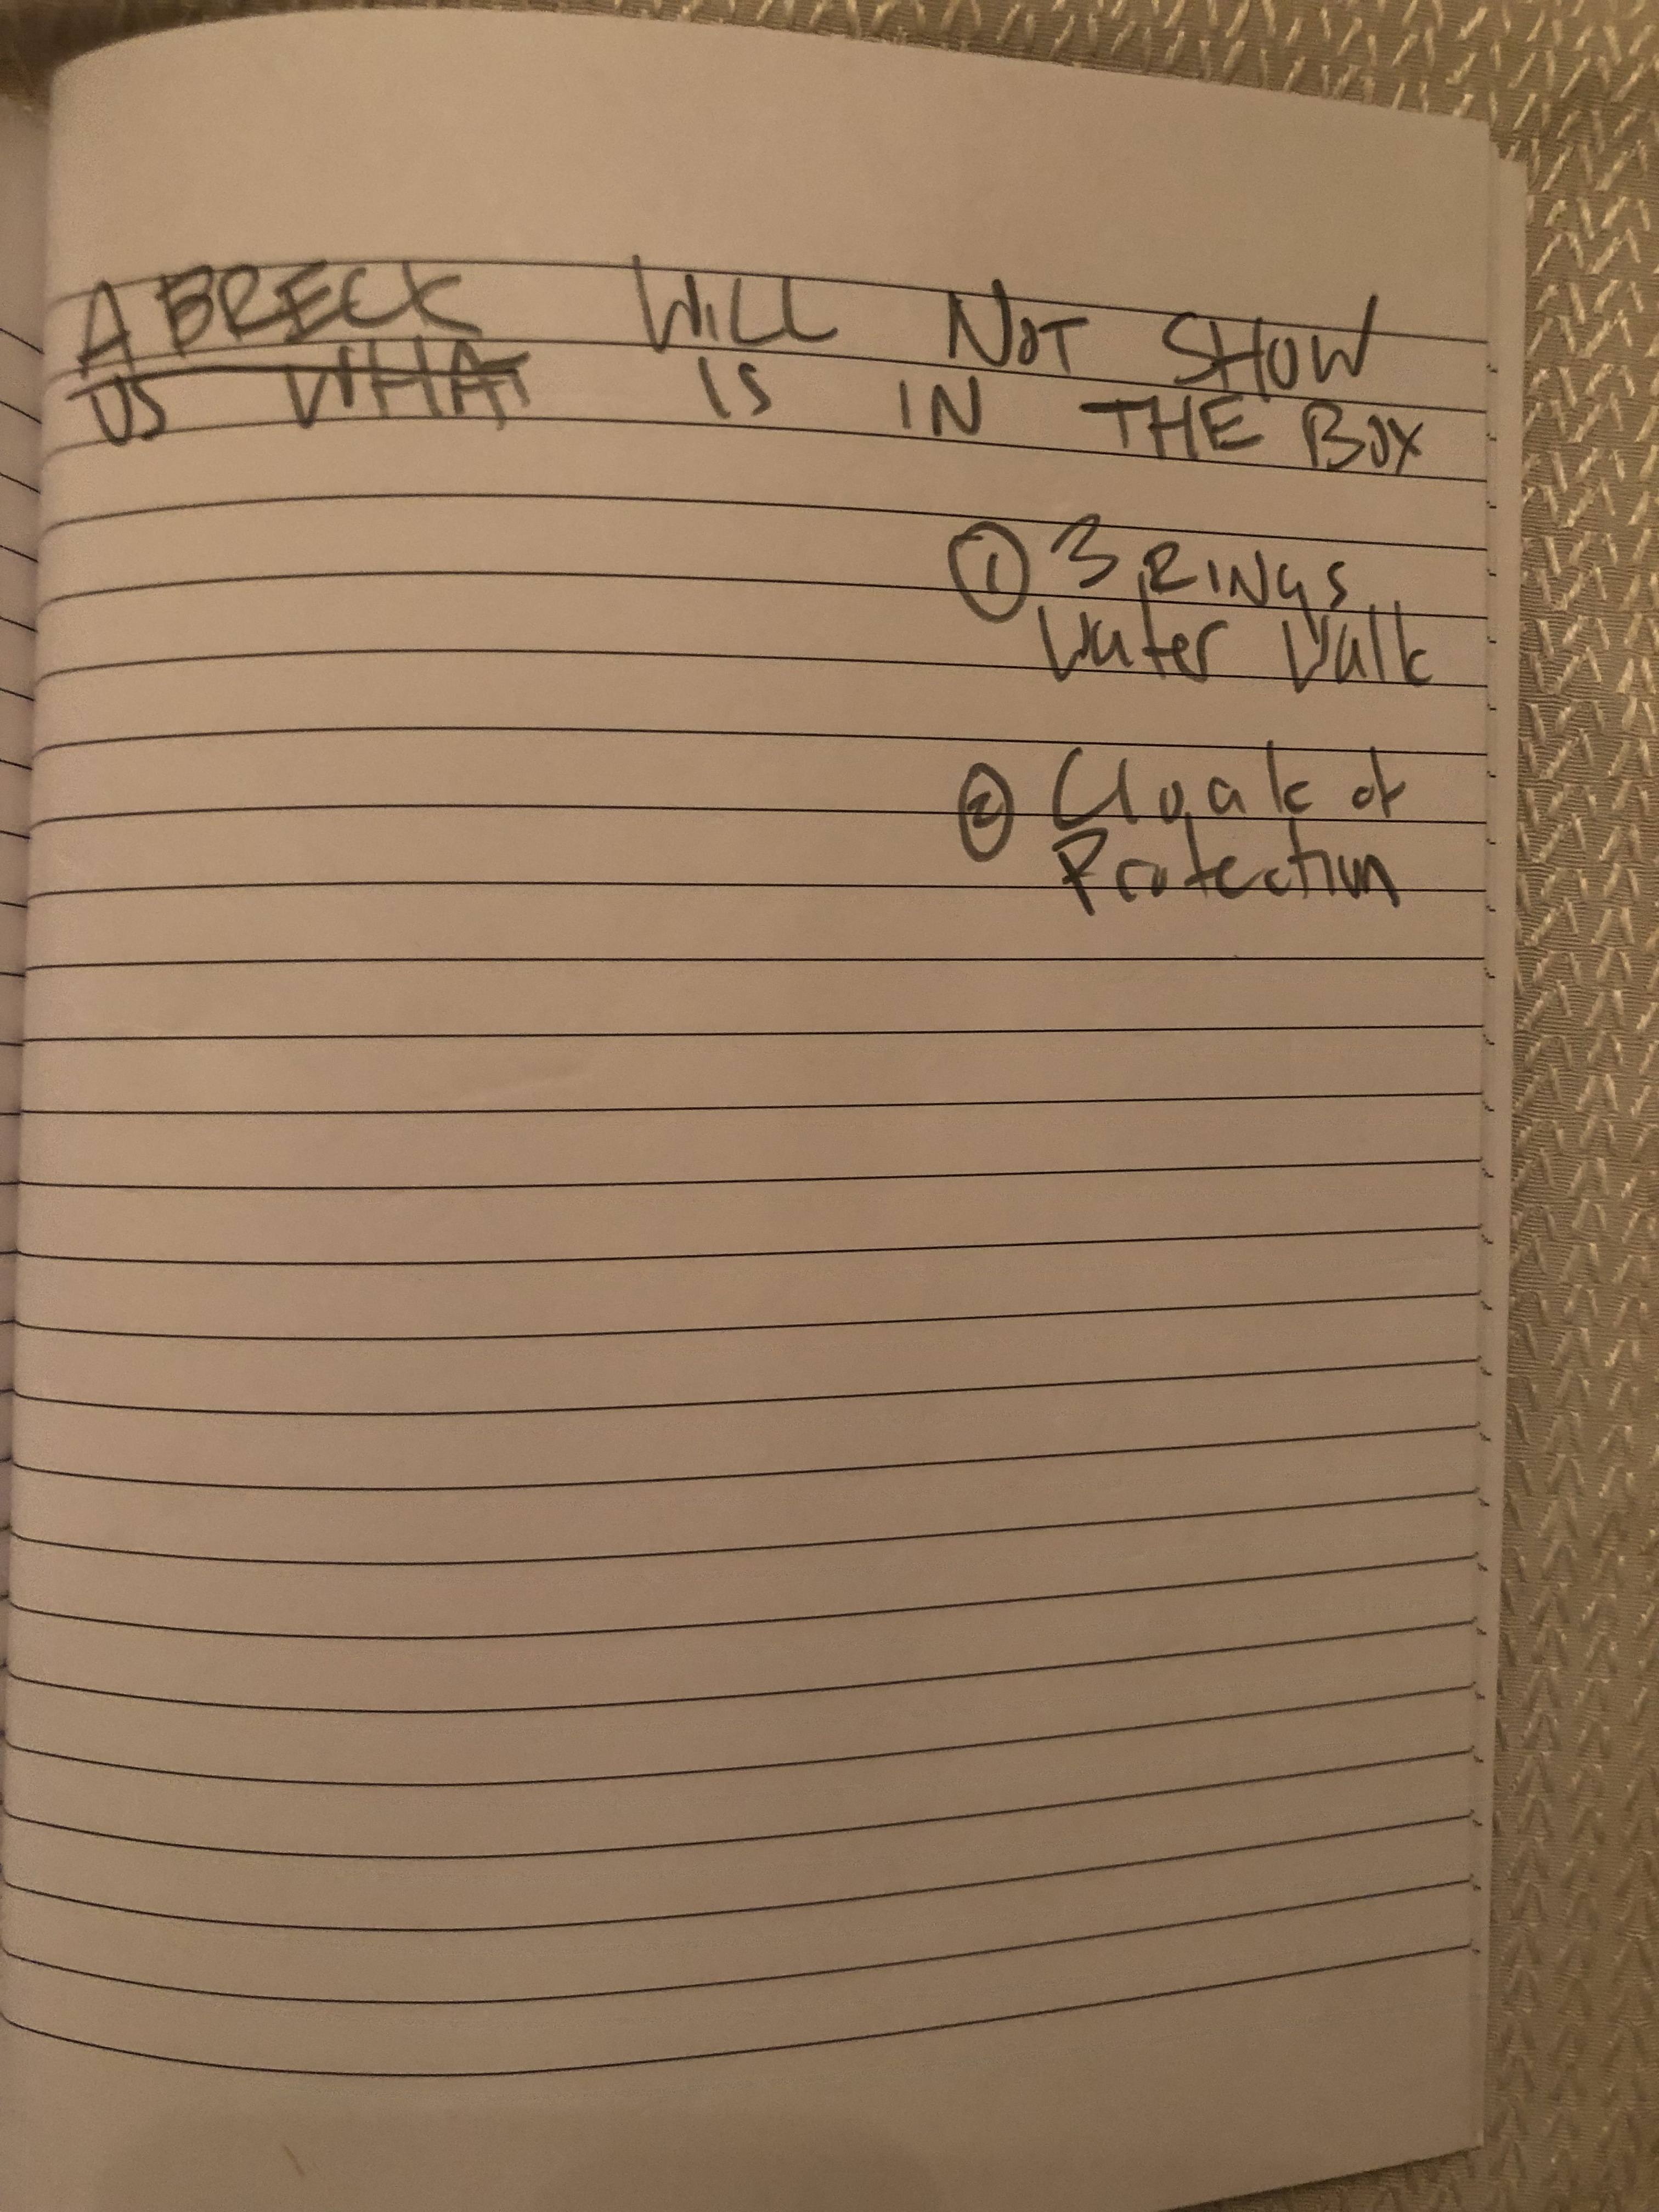 ABRECK WILL NOT SHOW
US WHAT IS IN THE BOX
① 3 RINGS
Water Walk
② Cloak of
Protection